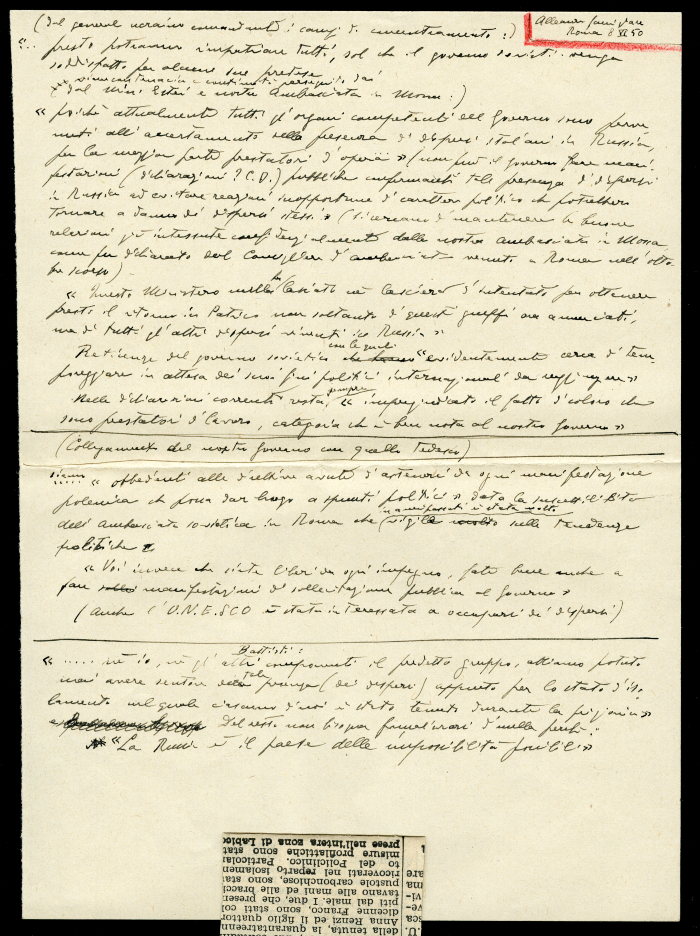 (dal generale ucraino comandante i campi di concentramento:)
Alleanza famigliare
Roma 8 XI 50
"... presto potranno rimpatriare tutti, sol che il governo sovietico venga
soddisfatto per alcune sue pretese
dal Min. Esteri e nostra Ambasciata in Mosca:)
" poiché attualmente tutti gli organi competenti del Governo sono perve
nuti all'accertamento della presenza di dispersi italiani in Russia,
per la maggior parte prestatori d'opera » (non può il governo fare mani
festazioni (dichiarazioni? C.D.) pubbliche confermanti tale presenza di dispersi
in Russia ad evitare reazioni inopportune di carattere politico che potrebbero
tornare a danno dei dispersi stessi » (si cercano di mantenere le buone
relazioni già intessute confidenzialmente dalla nostra ambasciata in Mosca,
come fu dichiarato dal Consigliere d'ambasciata venuto a Roma nell'otto
bre scorso).
" Questo Ministero nulla ha lasciato né lascierà d'intentato per ottenere
presto il ritorno in Patria non soltanto di questi
ma di tutti gli altri dispersi viventi in Russia »
Reticenze del governo sovietico con le quali "evidentemente cerca di tem
poreggiare in attesa dei suoi fini politici internazionali da raggiungere »
Nelle dichiarazioni correnti resta sempre " impregiudicato il fatto di coloro che
sono prestatori di lavoro, categoria che è ben nota al nostro Governo »
(Collegamento del nostro Governo con quello tedesco)
siamo " obbedienti alle direttive avute d'astenerci da ogni manifestazione
polemica che possa dar luogo a spunti politici », data la suscettibilità
dell'Ambasciata sovietica in Roma che
sulle tendenze
politiche
" Voi invece che siete liberi da ogni impegno, fate bene anche a
fare manifestazioni di sollecitazione pubblica al Governo »
(Anche l'U.N.E.SCO è stata interessata a occuparsi dei dispersi)
Battisti:
" ..... né io, né gli altri componenti il predetto gruppo, abbiamo potuto
mai avere sentore della tale presenza (dei dispersi) appunto per lo stato d'iso
lamento nel quale ciascuno di noi è stato tenuto durante la prigionia »
Del resto non bisogna
"La Russia è il paese delle impossibilità possibili »
della tenuta, la quarantatreenne
Anna Renzi ed il figlio quattor
dicenne Franco, sono stati col
piti dal male. I due, che presen
tavano alle mani ed alle bracci
pustole carbonchiose, sono stat
ricoverati nel reparto isolamen
to del Policlinico. Particolar
misure profilattiche sono stat
prese nell'intera zona di Labico